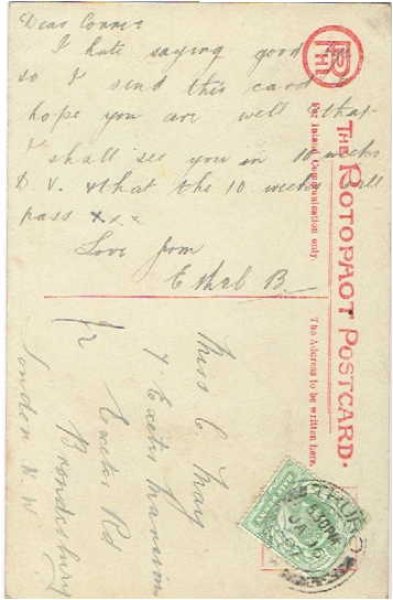 Dear Connie
I hate saying good
so I send this card
hope you are well & that
I shall see you in 10 weeks
D.V. & that the 10 weeks will
pass
Love from
Ethel B
THE ROTOPHOT POSTCARD.
For Inland Communication only.
The Address to be written here.
Miss C May
7 Exeter Mansions
Exeter Rd
Brondesbury
London N.W
TRURO
4.30PM
JA
07